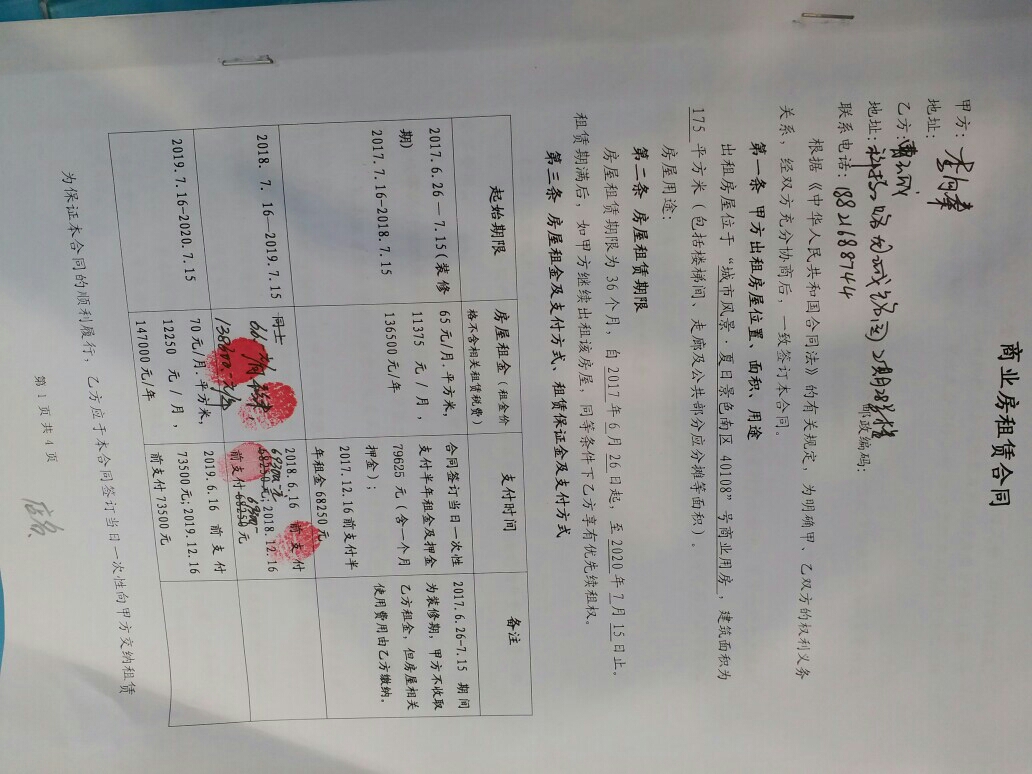 商业房租赁合同
甲方：
地址：
乙方：曹玉成
地址：科技路
邮政编码：
联系电话：18821688744
根据《中华人民共和国合同法》的有关规定，为明确甲、乙双方的权利义务
关系，经双方充分协商后，一致签订本合同。
第一条 甲方出租房屋位置、面积、用途
出租房屋位于“城市风景·夏日景色南区 40108”号商业用房，建筑面积为
175 平方米（包括楼梯间、走廊及公共部分应分摊等面积）。
房屋用途：
第二条 房屋租赁期限
房屋租赁期限为 36 个月，自 2017 年 6 月 26 日起，至 2020 年 7 月 15 日止。
租赁期满后，如甲方继续出租该房屋，同等条件下乙方享有优先续租权。
第三条 房屋租金及支付方式、租赁保证金及支付方式
起始期限
房屋租金（租金价
格不含相关租赁税费）
支付时间
备注
2017.6.26—7.15（装修
期）
2017.7.16-2018.7.15
65 元/月.平方米，
11375 元 / 月，
136500 元/年
合同签订当日一次性
支付半年租金及押金
79625 元（含一个月
押金）；
2017.12.16 前支付半
年租金 68250 元
2017.6.26-7.15 期间
为装修期，甲方不收取
乙方租金，但房屋相关
使用费用由乙方缴纳。
2018. 7. 16-2019.7.15
同上
138600元/年
2018.6.16 前支付
69300元
68250元；2018.12.16
前支付 68250 元
69300
2019.7.16-2020.7.15
70 元/月.平方米，
12250 元 / 月，
147000 元/年
2019.6.16 前支付
73500 元；2019.12.16
前支付 73500 元
为保证本合同的顺利履行，乙方应于本合同签订当日一次性向甲方交纳租赁
第 1 页 共 4 页